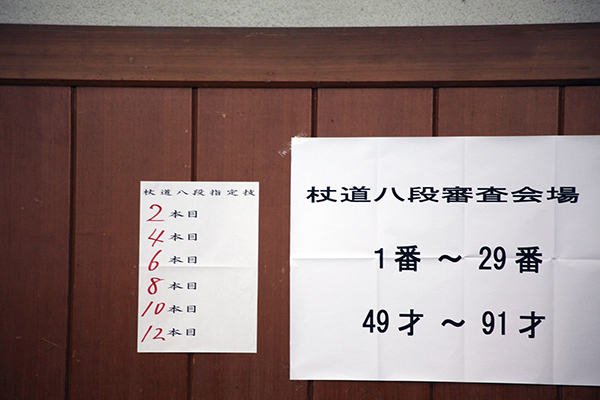 杖道八段指定技
2本目
4本目
6本目
8本目
10本目
12本目
杖道八段審査会場
1番～29番
49才～91才